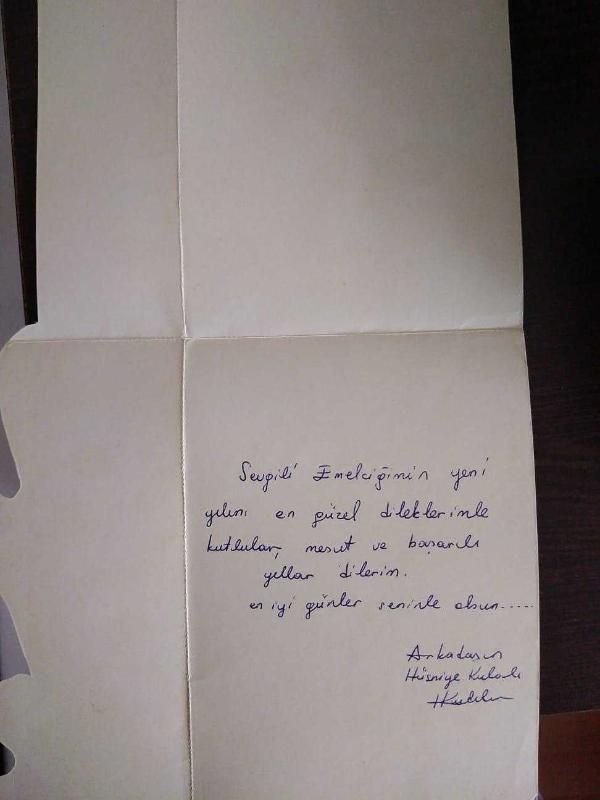 Sevgili Emelciğimin yeni
yılını en güzel dileklerimle
kutlular, mesut ve başarılı
yıllar dilerim.
en iyi günler seninle olsun.....
Arkadaşın
Hüsniye